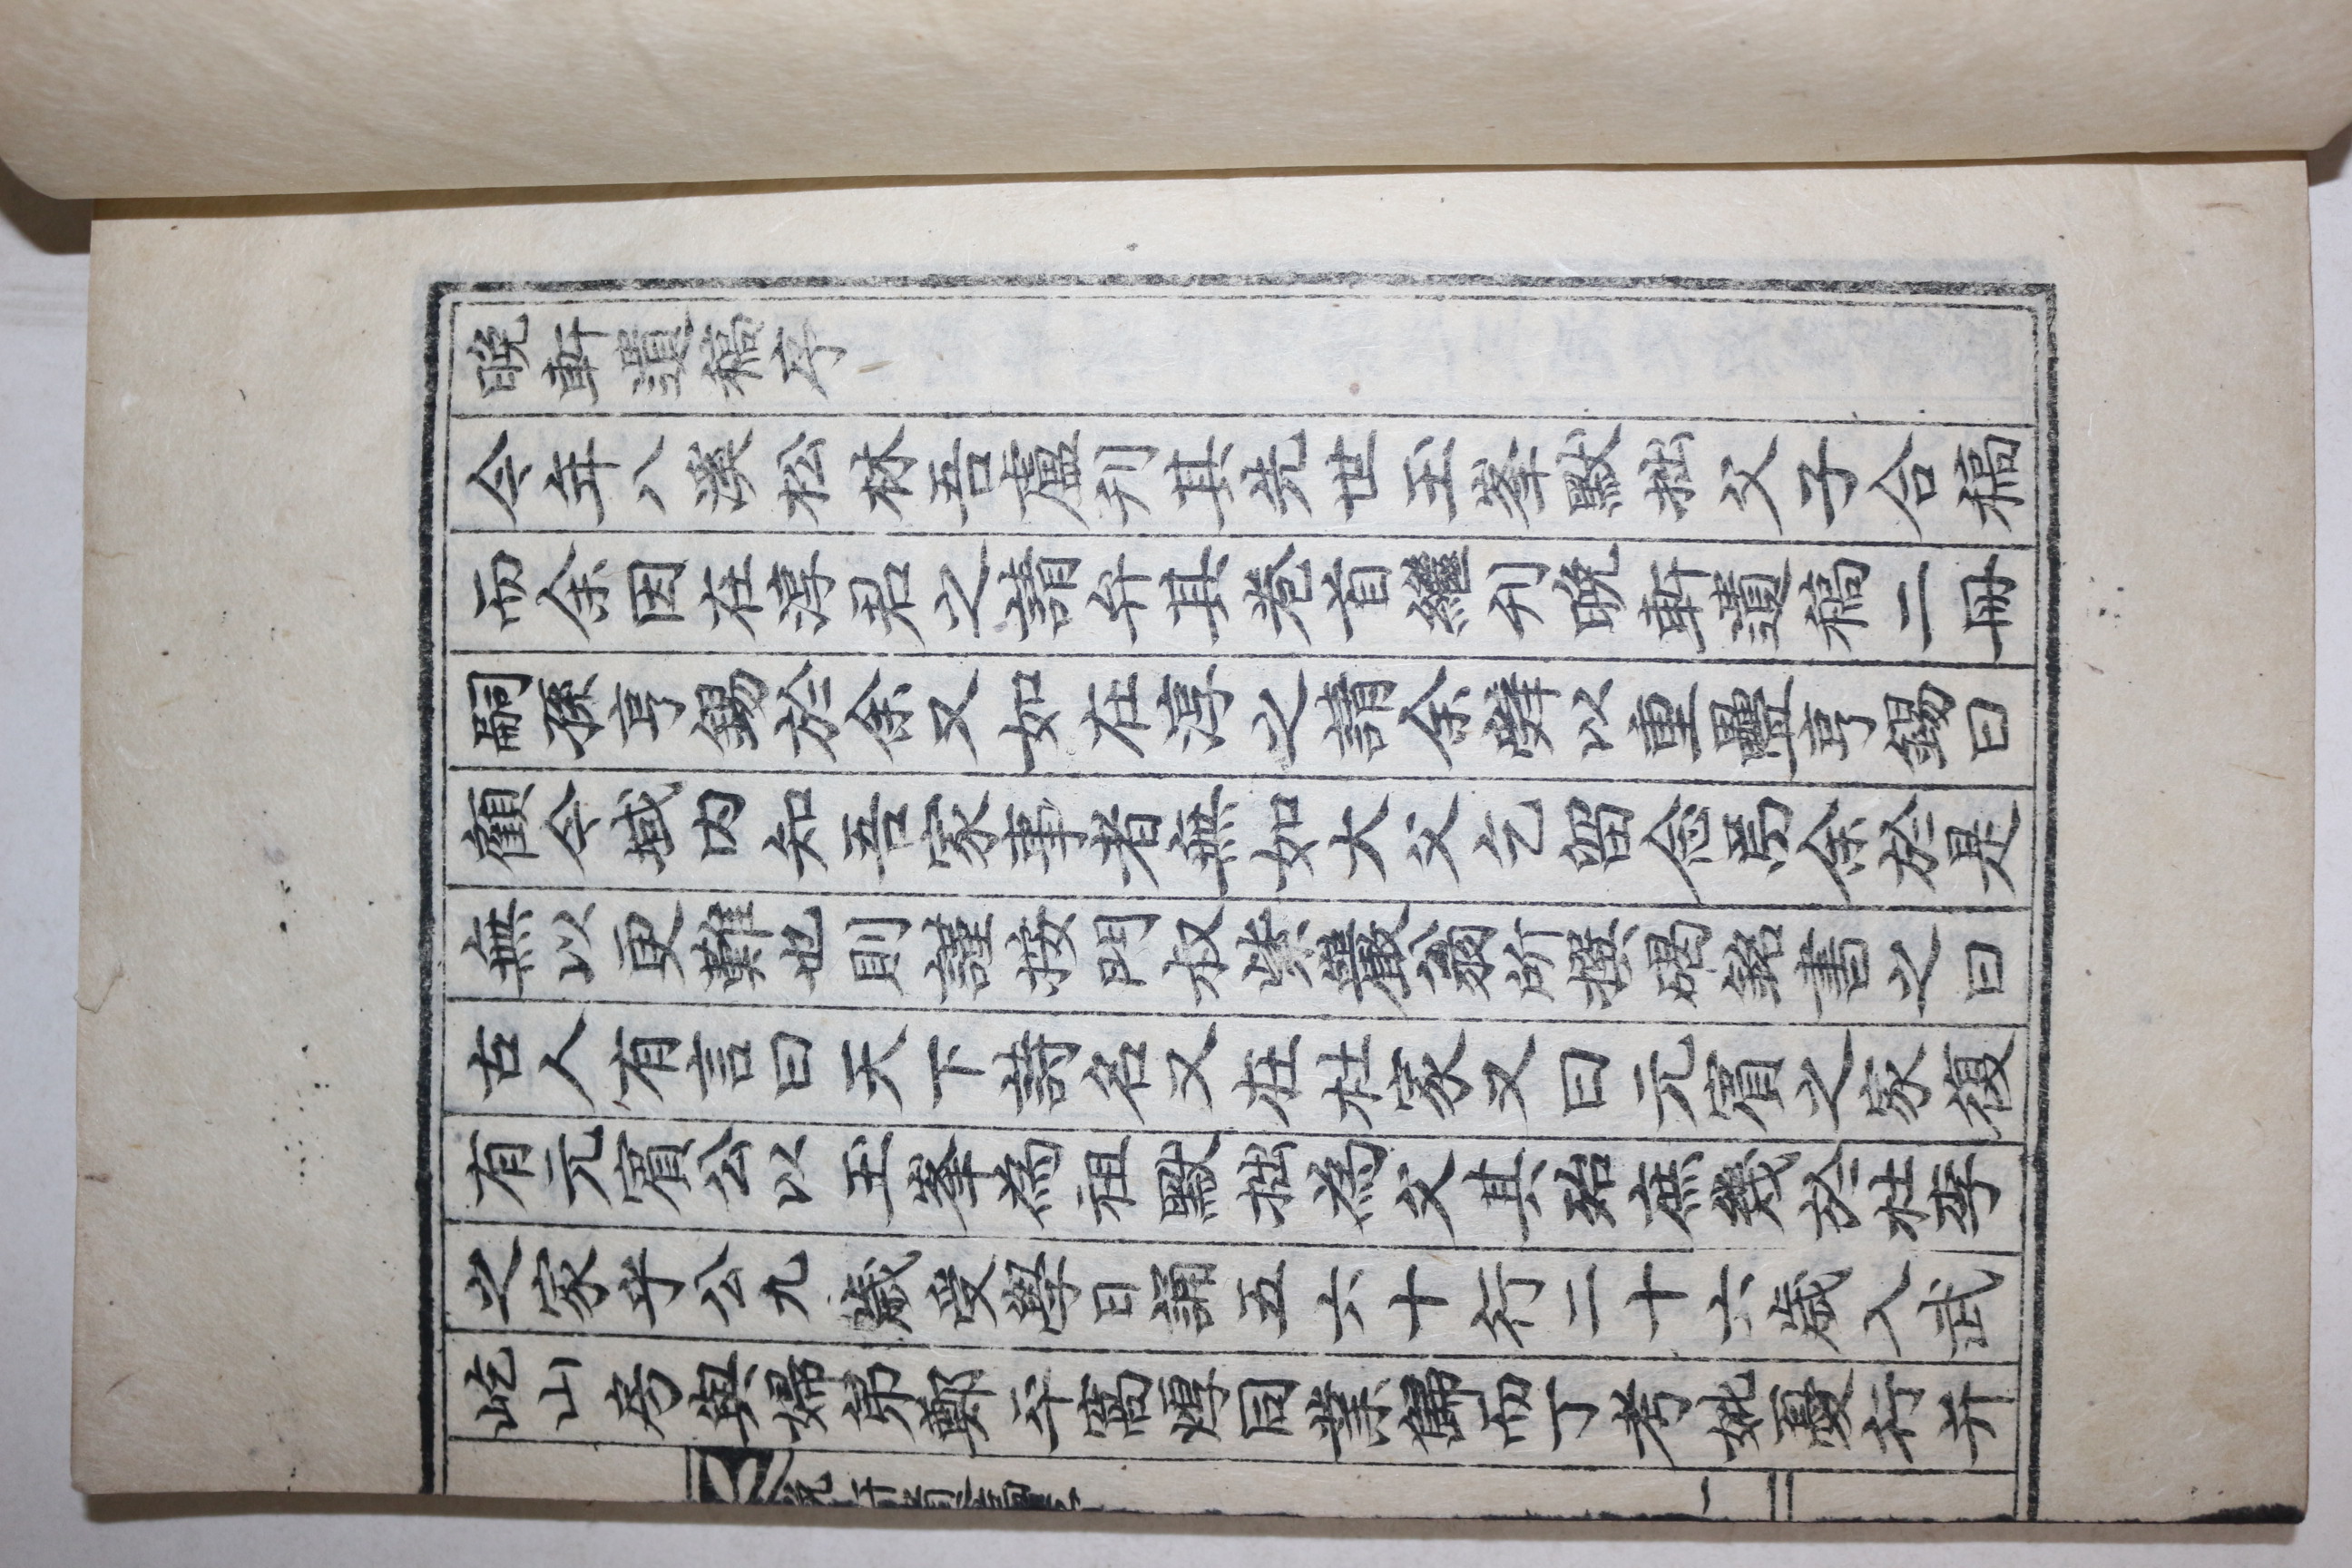 晩軒遺稿序
今年八溪松林吾廬刊其先世玉峯默拙父子合稿
而余因在淳君之請弁其卷首繼刊晩軒遺稿二冊
嗣孫亨錫於余又如在淳之請余辤以重疊亨錫曰
顧今域内知吾家事者無如大父乞留念焉余於是
無以更難也則謹按門叔紫巖翁所撰碣銘書之曰
古人有言曰天下詩名又在杜家又曰元賓之家復
有元賓公以玉峯為祖默拙為父其殆庶幾於杜李
之家乎公九歲受學日誦五六十行二十六歲入武
屹山房與婦弟鄭平窩焞同業歸而丁考妣憂行并
晩軒遺稿序
一